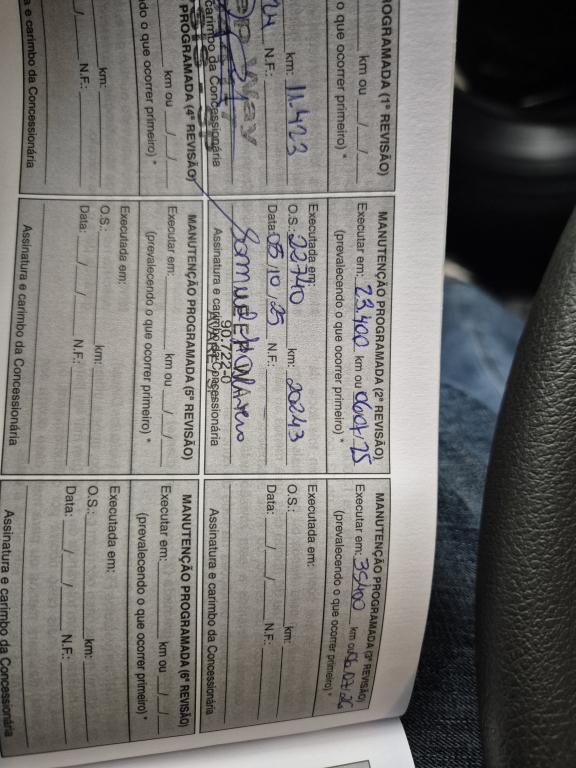 PROGRAMADA (1ª REVISÃO)
km ou / /
o que ocorrer primeiro) *
km: 11.423
N.F.:
carimbo da Concessionária
MANUTENÇÃO PROGRAMADA (2ª REVISÃO)
Executar em: 23.400 km ou 06/07/25
(prevalecendo o que ocorrer primeiro) *
Executada em:
O.S.: 22740 km: 20243
Data: 05/10/25 N.F.:
90.722-0
Assinatura e carimbo da Concessionária
MANUTENÇÃO PROGRAMADA (3ª REVISÃO)
Executar em: 35400 km ou 06/07/26
(prevalecendo o que ocorrer primeiro) *
Executada em:
O.S.: km:
Data: / / N.F.:
Assinatura e carimbo da Concessionária
PROGRAMADA (4ª REVISÃO)
km ou / /
o que ocorrer primeiro) *
km:
/ N.F.:
e carimbo da Concessionária
MANUTENÇÃO PROGRAMADA (5ª REVISÃO)
Executar em: km ou / /
(prevalecendo o que ocorrer primeiro) *
Executada em:
O.S.: km:
Data: / / N.F.:
Assinatura e carimbo da Concessionária
MANUTENÇÃO PROGRAMADA (6ª REVISÃO)
Executar em: km ou / /
(prevalecendo o que ocorrer primeiro) *
Executada em:
O.S.: km:
Data: / / N.F.:
Assinatura e carimbo da Concessionária